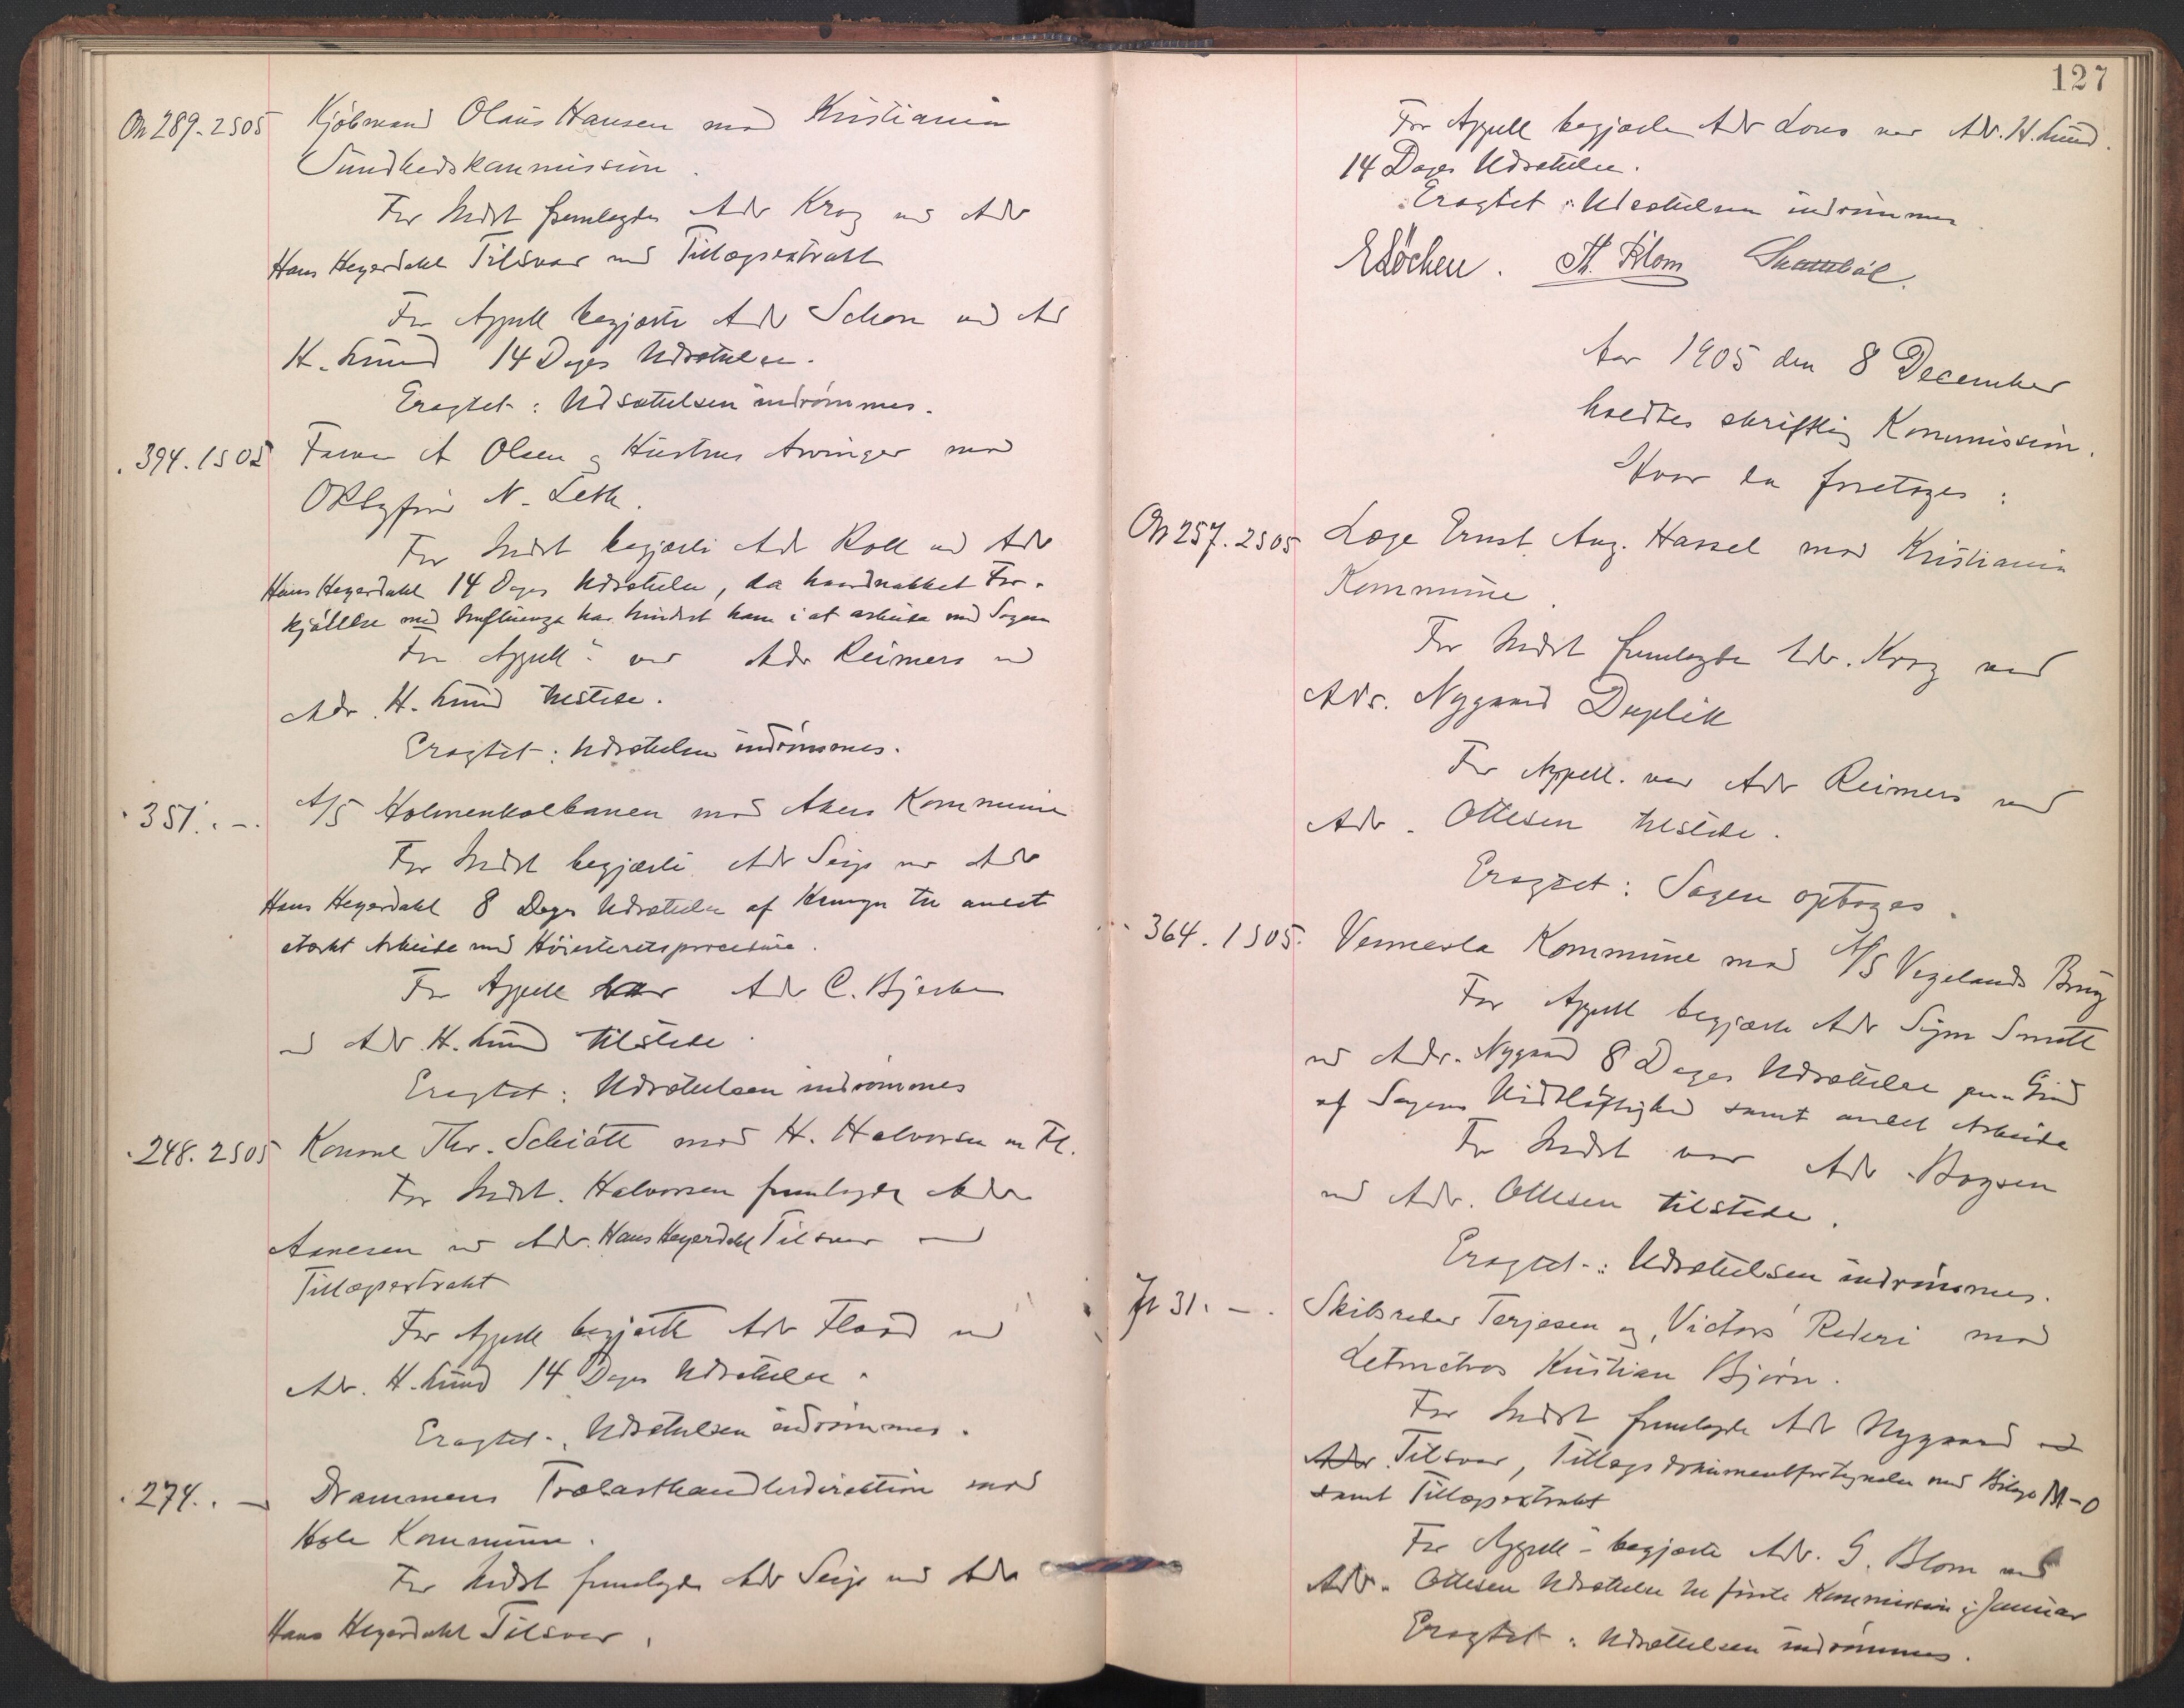 On 289. 2 S 05 Kjöbmand Olaus Hansen mod Kristiania
Sundhedskommission.
For Indst fremlagdes Adv Krag ved Adv
Hans Heyerdahl Tilsvar med Tillægsextrakt
For Appell begjærte Adv Schou ved Ad
H. Lund 14 Dages Udsættelse.
Eragtet: Udsættelsen indrömmes.
. 394. 1 S 05 A Olsen og Hustrus Arvinger mod
N. Leth.
For Indst begjærte Adv Roll ved Adv
Hans Heyerdahl 14 Dages Udsættelse, da haardnakket For-
kjölelse med Influenza har hindret ham i at arbeide med Sagen
For Appell var Adv Reimers ved
Adv. H. Lund tilstede.
Eragtet: Udsættelsen indrömmes.
. 351. . - . A/S Holmenkolbanen mod Akers Kommune
For Indst begjærte Adv Seip ved Adv
Hans Heyerdahl 8 Dages Udsættelse af Hensyn til andet
stærkt Arbeide med Höiesteretsprocedure.
For Appell var Adv C. Bjerke
ved Adv. H. Lund tilstede.
Eragtet: Udsættelsen indrömmes
. 248. 2 S 05 Konsul Thr. Schiött mod H. Halvorsen m Fl.
For Indst. Halvorsen fremlagde Adv
Aanesen ved Adv. Hans Heyerdahl Tilsvar med
Tillægsextrakt
For Appell begjærte Adv Flood ved
Adv. H. Lund 14 Dages Udsættelse.
Eragtet: Udsættelsen indrömmes.
. 274. . - Drammens Trælasthandlerdirektion mod
Hole Kommune.
For Indst fremlagde Adv Seip ved Adv
Hans Heyerdahl Tilsvar.
127
For Appell begjærte Adv Lous ved Adv. H. Lund.
14 Dages Udsættelse.
Eragtet: Udsættelsen indrömmes
E Löchen. Th. Blom
Aar 1905 den 8 December
holdtes skriftlig Kommission.
Hvor da foretoges:
On 257. 2 S 05 Læge Ernst Aug. Hassel mod Kristiania
Kommune.
For Indst fremlagde Adv. Krag ved
Adv. Nygaard Duplik
For Appell. var Adv Reimers ved
Adv. Ottesen tilstede.
Eragtet: Sagen optages.
. 364. 1 S 05. Vennesla Kommune mod A/S Vigelands Brug
For Appell begjærte Adv Smitt
ved Adv. Nygaard 8 Dages Udsættelse paa Grund
af Sagens Vidtlöftighed samt andet Arbeide
For Indst var Adv Boysen
ved Adv. Ottesen tilstede.
Eragtet: Udsættelsen indrömmes.
Fr 31. - . Skibsreder Terjesen og "Victors" Rederi mod
Letmatros Kristian Björn.
For Indst fremlagde Adv Nygaard ved
Adv. Tilsvar, Tillægsdokumentfortegnelse med Bilage M-O
samt Tillægsextrakt
For Appell begjærte Adv. G. Blom ved
Adv. Ottesen Udsættelse til förste Kommission i Januar
Eragtet: Udsættelsen indrömmes.